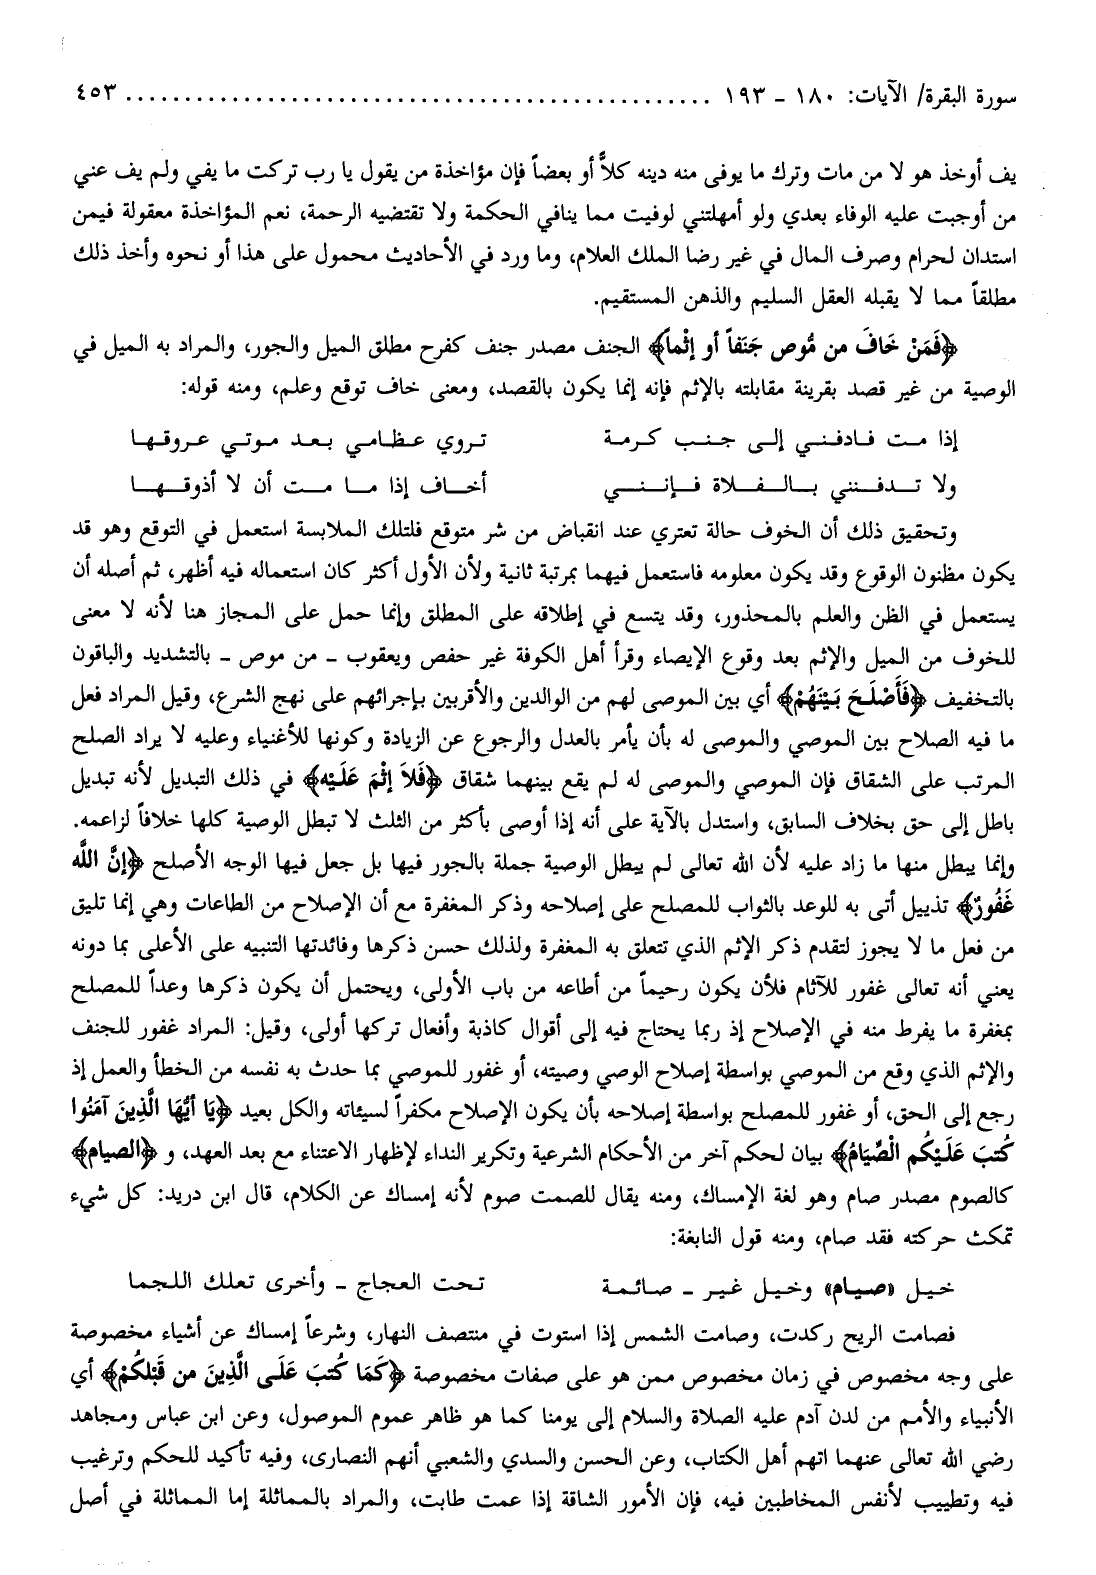 سورة البقرة/ الآيات: ١٨٠ ـ ١٩٣ ................................................ ٤٥٣
يف أوخذ هو لا من مات وترك ما يوفى منه دينه كلاًّ أو بعضاً فإن مؤاخذة من يقول يا رب تركت ما يفي ولم يف عني
من أوجبت عليه الوفاء بعدي ولو أمهلتني لوفيت مما ينافي الحكمة ولا تقتضيه الرحمة، نعم المؤاخذة معقولة فيمن
استدان لحرام وصرف المال في غير رضا الملك العلام، وما ورد في الأحاديث محمول على هذا أو نحوه وأخذ ذلك
مطلقاً مما لا يقبله العقل السليم والذهن المستقيم.
﴿فَمَنْ خَافَ من مُّوص جَنَفاً أو إثْماً﴾ الجنف مصدر جنف كفرح مطلق الميل والجور، والمراد به الميل في
الوصية من غير قصد بقرينة مقابلته بالإثم فإنه إنما يكون بالقصد، ومعنى خاف توقع وعلم، ومنه قوله:
إذا مت فادفني إلى جنب كرمة تروي عظامي بعد موتي عروقها
ولا تدفنني بالفلاة فإنني أخاف إذا ما مت أن لا أذوقها
وتحقيق ذلك أن الخوف حالة تعتري عند انقباض من شر متوقع فلتلك الملابسة استعمل في التوقع وهو قد
يكون مظنون الوقوع وقد يكون معلومه فاستعمل فيهما بمرتبة ثانية ولأن الأول أكثر كان استعماله فيه أظهر، ثم أصله أن
يستعمل في الظن والعلم بالمحذور، وقد يتسع في إطلاقه على المطلق وإنما حمل على المجاز هنا لأنه لا معنى
للخوف من الميل والإثم بعد وقوع الإيصاء وقرأ أهل الكوفة غير حفص ويعقوب ـ من موص ـ بالتشديد والباقون
بالتخفيف ﴿فَأَصْلَحَ بَيْنَهُمْ﴾ أي بين الموصى لهم من الوالدين والأقربين بإجرائهم على نهج الشرع، وقيل المراد فعل
ما فيه الصلاح بين الموصي والموصى له بأن يأمر بالعدل والرجوع عن الزيادة وكونها للأغنياء وعليه لا يراد الصلح
المرتب على الشقاق فإن الموصي والموصى له لم يقع بينهما شقاق ﴿فَلاَ إثْمَ عَلَيْه﴾ في ذلك التبديل لأنه تبديل
باطل إلى حق بخلاف السابق، واستدل بالآية على أنه إذا أوصى بأكثر من الثلث لا تبطل الوصية كلها خلافاً لزاعمه.
وإنما يبطل منها ما زاد عليه لأن الله تعالى لم يبطل الوصية جملة بالجور فيها بل جعل فيها الوجه الأصلح ﴿إنَّ اللَّه
غَفُورٌ﴾ تذييل أتى به للوعد بالثواب للمصلح على إصلاحه وذكر المغفرة مع أن الإصلاح من الطاعات وهي إنما تليق
من فعل ما لا يجوز لتقدم ذكر الإثم الذي تتعلق به المغفرة ولذلك حسن ذكرها وفائدتها التنبيه على الأعلى بما دونه
يعني أنه تعالى غفور للآثام فلأن يكون رحيماً من أطاعه من باب الأولى، ويحتمل أن يكون ذكرها وعداً للمصلح
بمغفرة ما يفرط منه في الإصلاح إذ ربما يحتاج فيه إلى أقوال كاذبة وأفعال تركها أولى، وقيل: المراد غفور للجنف
والإثم الذي وقع من الموصي بواسطة إصلاح الوصي وصيته، أو غفور للموصي بما حدث به نفسه من الخطأ والعمل إذ
رجع إلى الحق، أو غفور للمصلح بواسطة إصلاحه بأن يكون الإصلاح مكفراً لسيئاته والكل بعيد ﴿يَا أيُّهَا الَّذِينَ آمَنُوا
كُتبَ عَلَيْكُم الْصِّيَامُ﴾ بيان لحكم آخر من الأحكام الشرعية وتكرير النداء لإظهار الاعتناء مع بعد العهد، و ﴿الصيام﴾
كالصوم مصدر صام وهو لغة الإمساك، ومنه يقال للصمت صوم لأنه إمساك عن الكلام، قال ابن دريد: كل شيء
تمكث حركته فقد صام، ومنه قول النابغة:
خيل «صيام» وخيل غير ـ صائمة تحت العجاج ـ وأخرى تعلك اللجما
فصامت الريح ركدت، وصامت الشمس إذا استوت في منتصف النهار، وشرعاً إمساك عن أشياء مخصوصة
على وجه مخصوص في زمان مخصوص ممن هو على صفات مخصوصة ﴿كَمَا كُتبَ عَلَى الَّذِينَ من قَبْلكُمْ﴾ أي
الأنبياء والأمم من لدن آدم عليه الصلاة والسلام إلى يومنا كما هو ظاهر عموم الموصول، وعن ابن عباس ومجاهد
رضي الله تعالى عنهما اتهم أهل الكتاب، وعن الحسن والسدي والشعبي أنهم النصارى، وفيه تأكيد للحكم وترغيب
فيه وتطييب لأنفس المخاطبين فيه، فإن الأمور الشاقة إذا عمت طابت، والمراد بالمماثلة إما المماثلة في أصل